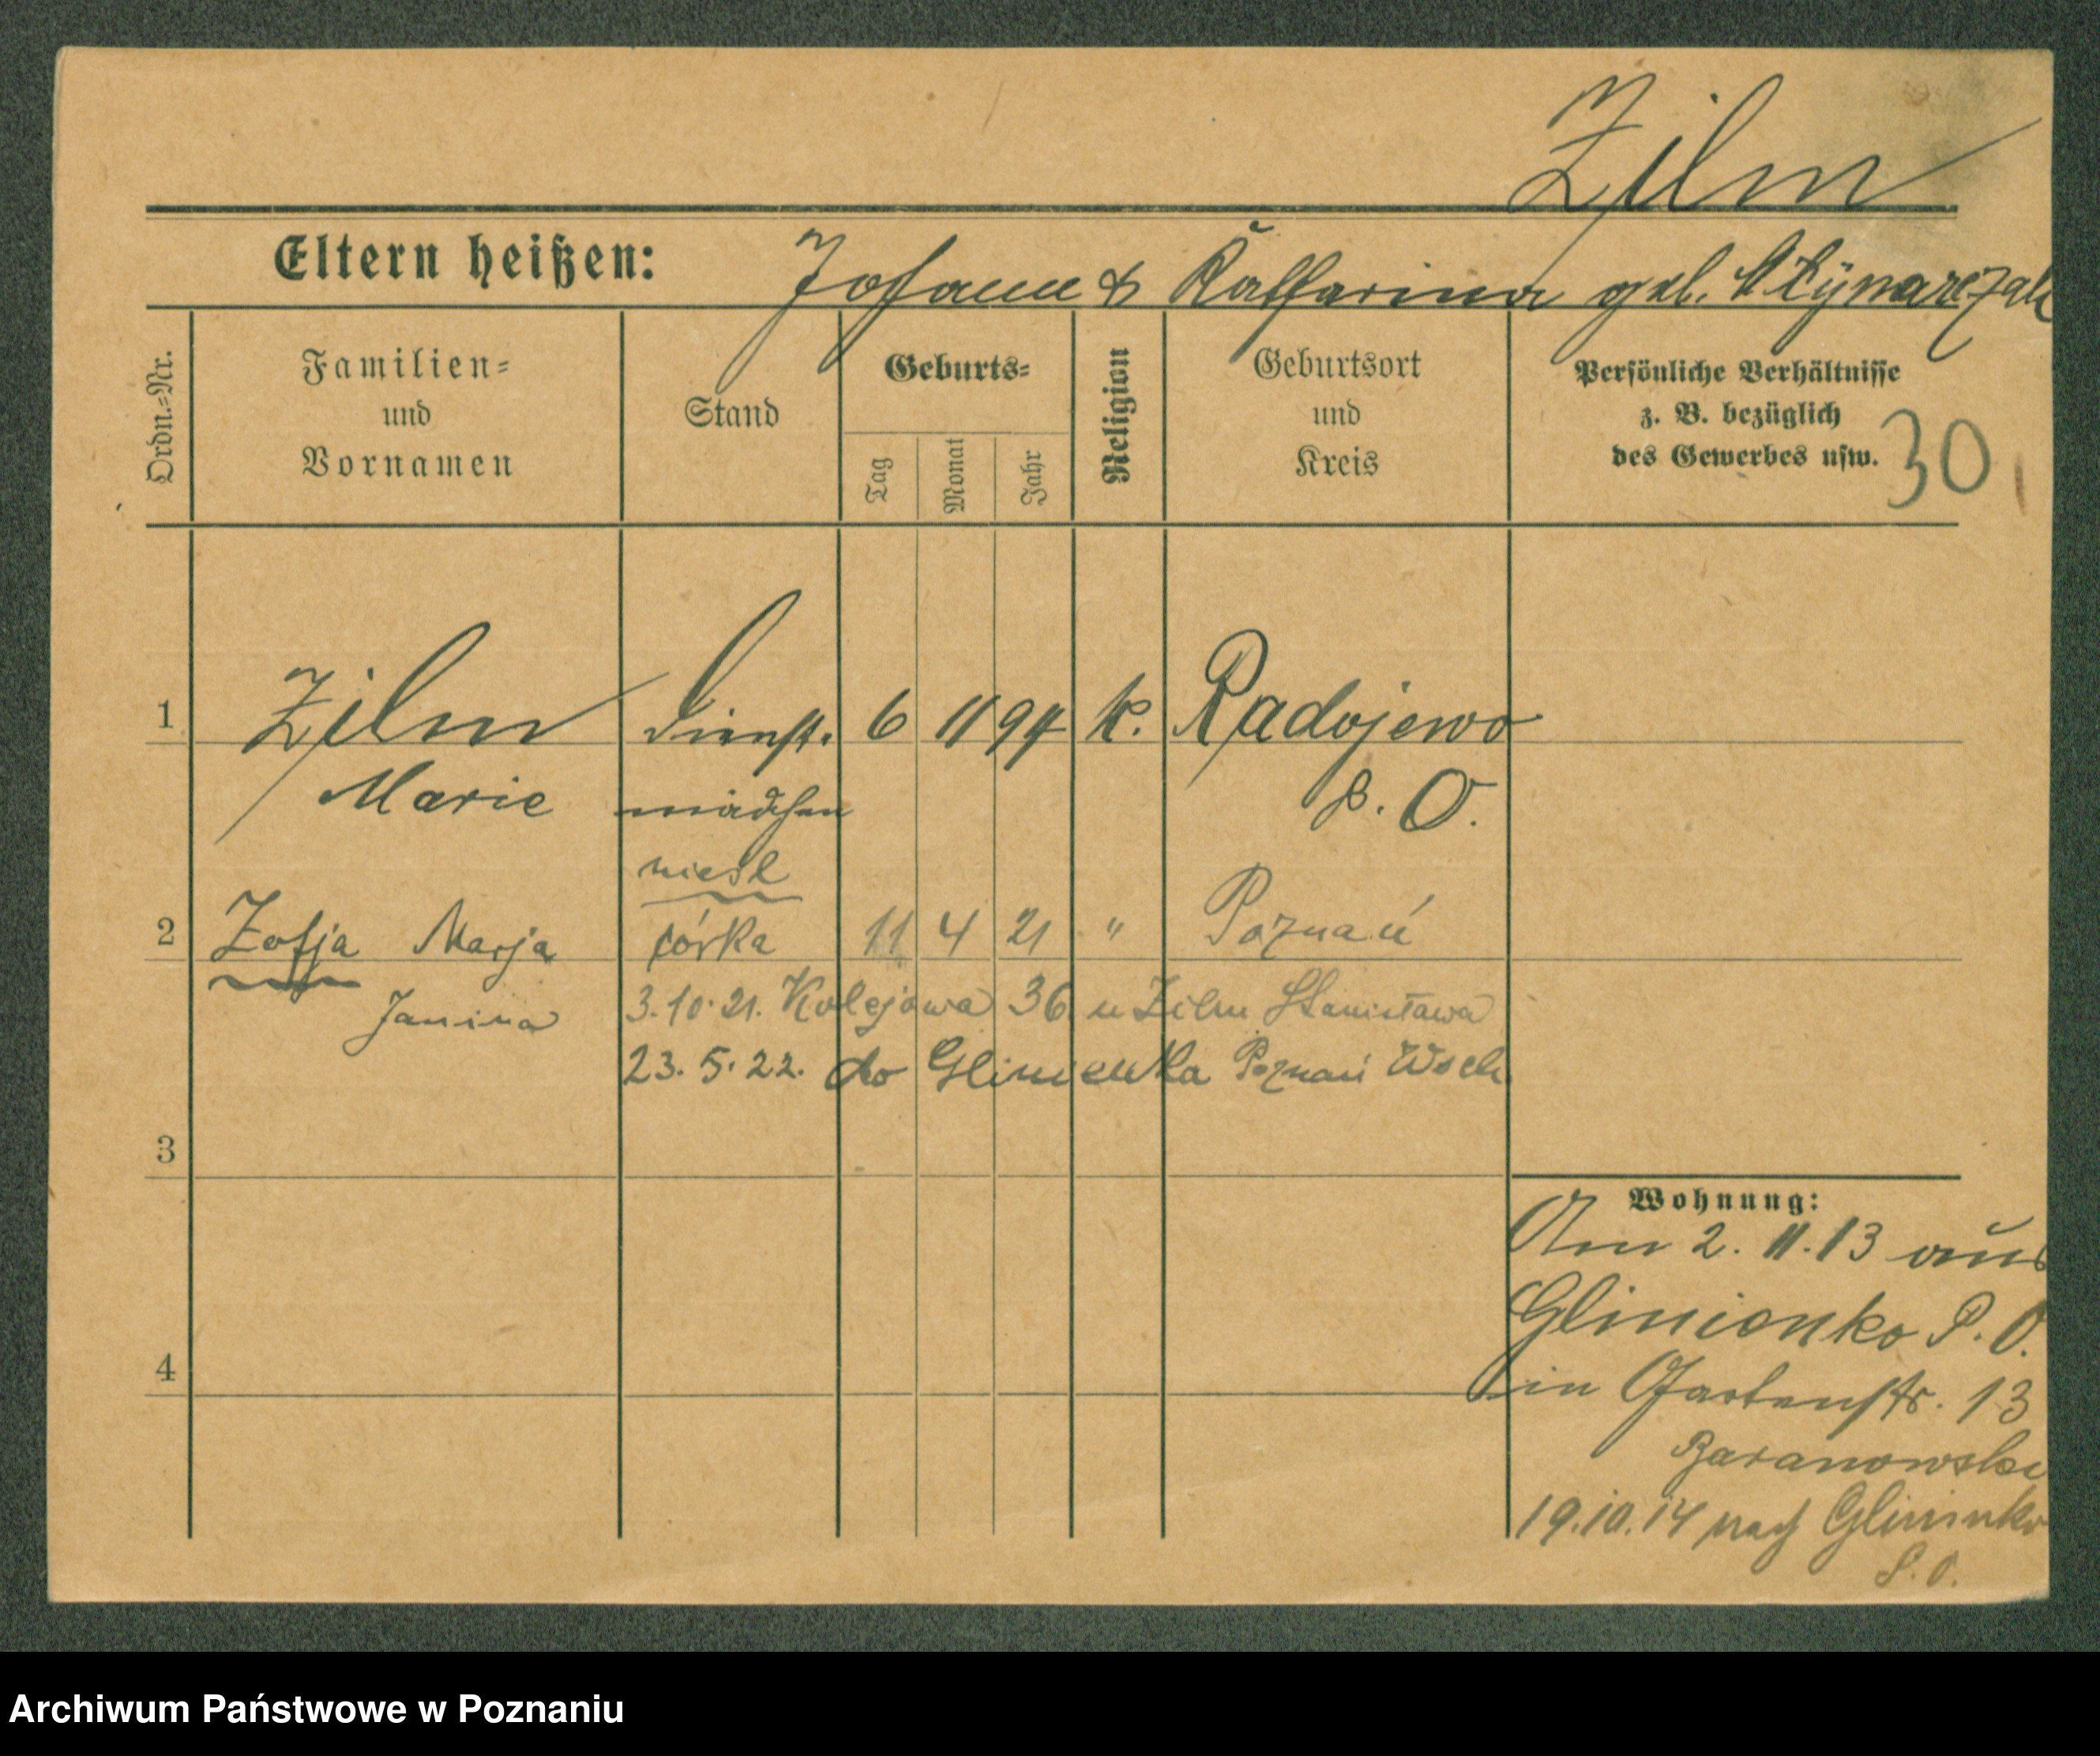 Zilm
Eltern heißen: Johann & Katharina geb. Młynarczak
Ordn.-Nr.
Familien-
und
Vornamen
Stand
Geburts-
Tag
Monat
Jahr
Religion
Geburtsort
und
Kreis
Persönliche Verhältnisse
z. B. bezüglich
des Gewerbes usw.
30
1 Zilm Dienst. 6 11 94 k. Radojewo
Marie mädchen P. O.
nieśl
2 Zofja Marja córka 11 4 21 " Poznań
Janina 3.10.21. Kolejowa 36 u Zilm Stanisława
23.5.22. do Glinienka Poznań Wsch.
3
4
Wohnung:
Am 2.11.13 aus
Glinienko P. O.
in Gartenstr. 13
Baranowski
19.10.14 nach Glininko
P. O.
Archiwum Państwowe w Poznaniu